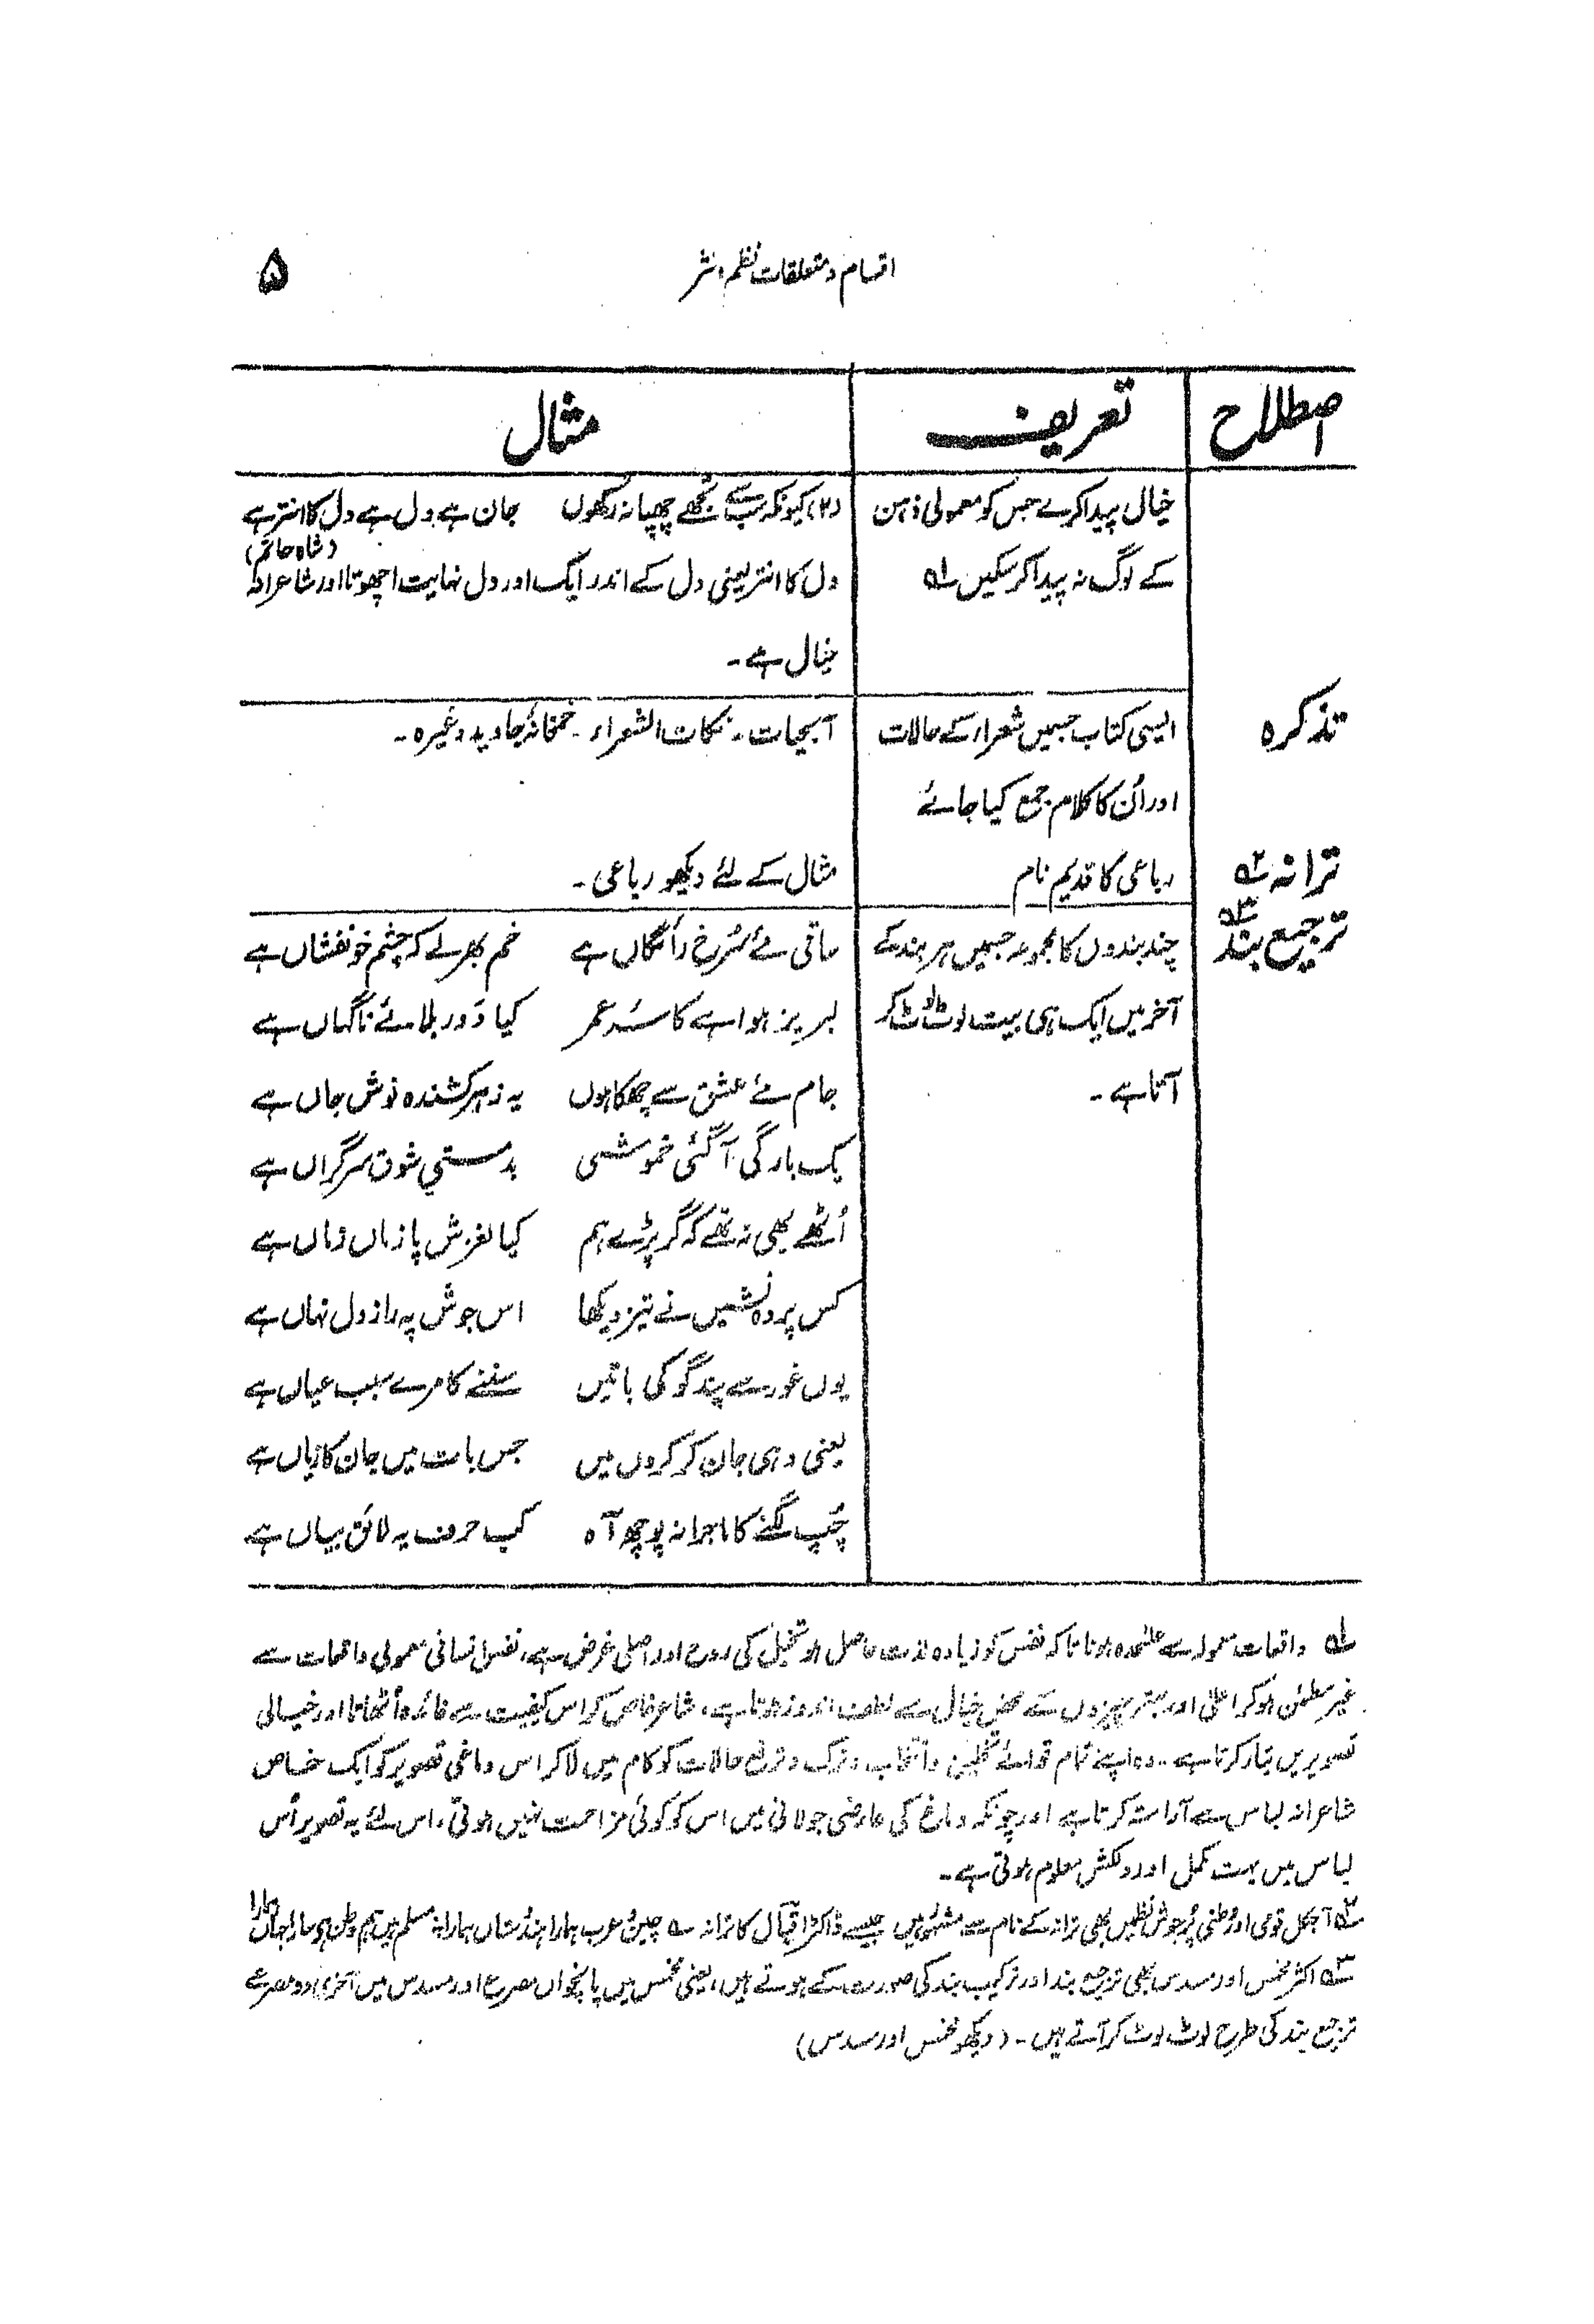 اقسام و متعلقات نظم و نثر
۵
اصطلاح
تعریف
مثال
خیال پیدا کرے جس کو معمولی ذہن
کے لوگ نہ پیدا کر سکیں ؎۱
(۲) کیونکہ سب سے تجھے چھپا نہ رکھوں جان ہے دل ہے دل کا انتر ہے
(شاہ حاتم)
دل کا انتر یعنی دل کے اندر ایک اور دل نہایت اچھوتا اور شاعرانہ
خیال ہے۔
تذکرہ
ایسی کتاب جسمیں شعراء کے حالات
اور اُن کا کلام جمع کیا جائے
آبحیات۔ نکات الشعراء۔ خمخانۂ جاوید وغیرہ۔
ترانہ ؎۲
رباعی کا قدیم نام
مثال کے لئے دیکھو رباعی۔
ترجیع بند ؎۳
چند بندوں کا مجموعہ جسمیں ہر بند کے
آخر میں ایک ہی بیت لوٹ لوٹ کر
آتا ہے۔
ساقی مئے سُرخ رائگاں ہے خم بھر لے کہ چشم خونفشاں ہے
لبریز ہوا ہے کاسۂ عمر کیا دَور بلائے ناگہاں ہے
جام مئے عشق سے چھکا ہوں یہ زہر کشندہ نوش جاں ہے
یک بارگی آ گئی خموشی بدمستیِ شوق سرگراں ہے
اُٹھے بھی نہ تھے کہ گر پڑے ہم کیا لغزش پا زماں زماں ہے
کس پردہ نشیں نے تیز دیکھا اس جوش پہ راز دل نہاں ہے
یوں غور سے پند گو کی باتیں سننے کا مرے سبب عیاں ہے
یعنی وہی جان کر کروں میں جس بات میں جان کا زیاں ہے
چُپ لگنے کا ماجرا نہ پوچھ آہ کب حرف یہ لائق بیاں ہے
؎۱ واقعات معمولہ سے علیٰحدہ ہونا تا کہ نفس کو زیادہ لذت حاصل ہو تخیل کی روح اور اصلی غرض ہے، نفس انسانی معمولی واقعات سے
غیر مطمئن ہو کر اعلیٰ اور بہتر چیزوں کے محض خیال سے لطف اندوز ہوتا ہے، شاعر خاص کر اس کیفیت سے فائدہ اُٹھاتا اور خیالی
تصویریں تیار کرتا ہے۔ وہ اپنے تمام قوائے تخلیق و انتخاب و ترک و حالات کو کام میں لا کر اس دماغی تصویر کو ایک خاص
شاعرانہ لباس سے آراستہ کرتا ہے اور چونکہ دماغ کی عارضی جولانی میں اس کو کوئی مزاحمت نہیں ہوتی، اس لئے یہ تصویر اُس
لباس میں بہت مکمل اور دلکش معلوم ہوتی ہے۔
؎۲ آجکل قومی اور وطنی پُر جوش نظمیں بھی ترانہ کے نام سے مشہور ہیں جیسے ڈاکٹر اقبال کا ترانہ ؎ چین و عرب ہمارا ہندوستاں ہمارا۔ مسلم ہیں ہم وطن ہے سارا جہاں ہمارا
؎۳ اکثر مخمس اور مسدس بھی ترجیع بند اور ترکیب بند کی صورت کے ہوتے ہیں، یعنی مخمس میں پانچواں مصرع اور مسدس میں آخری دو مصرعے
ترجیع بند کی طرح لوٹ لوٹ کر آتے ہیں۔ (دیکھو مخمس اور مسدس)